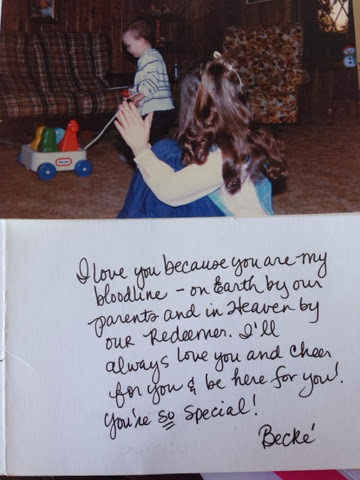 I love you because you are my
bloodline - on Earth by our
parents and in Heaven by
our Redeemer. I'll
always love you and cheer
for you & be here for you!
You're so special!
Becké